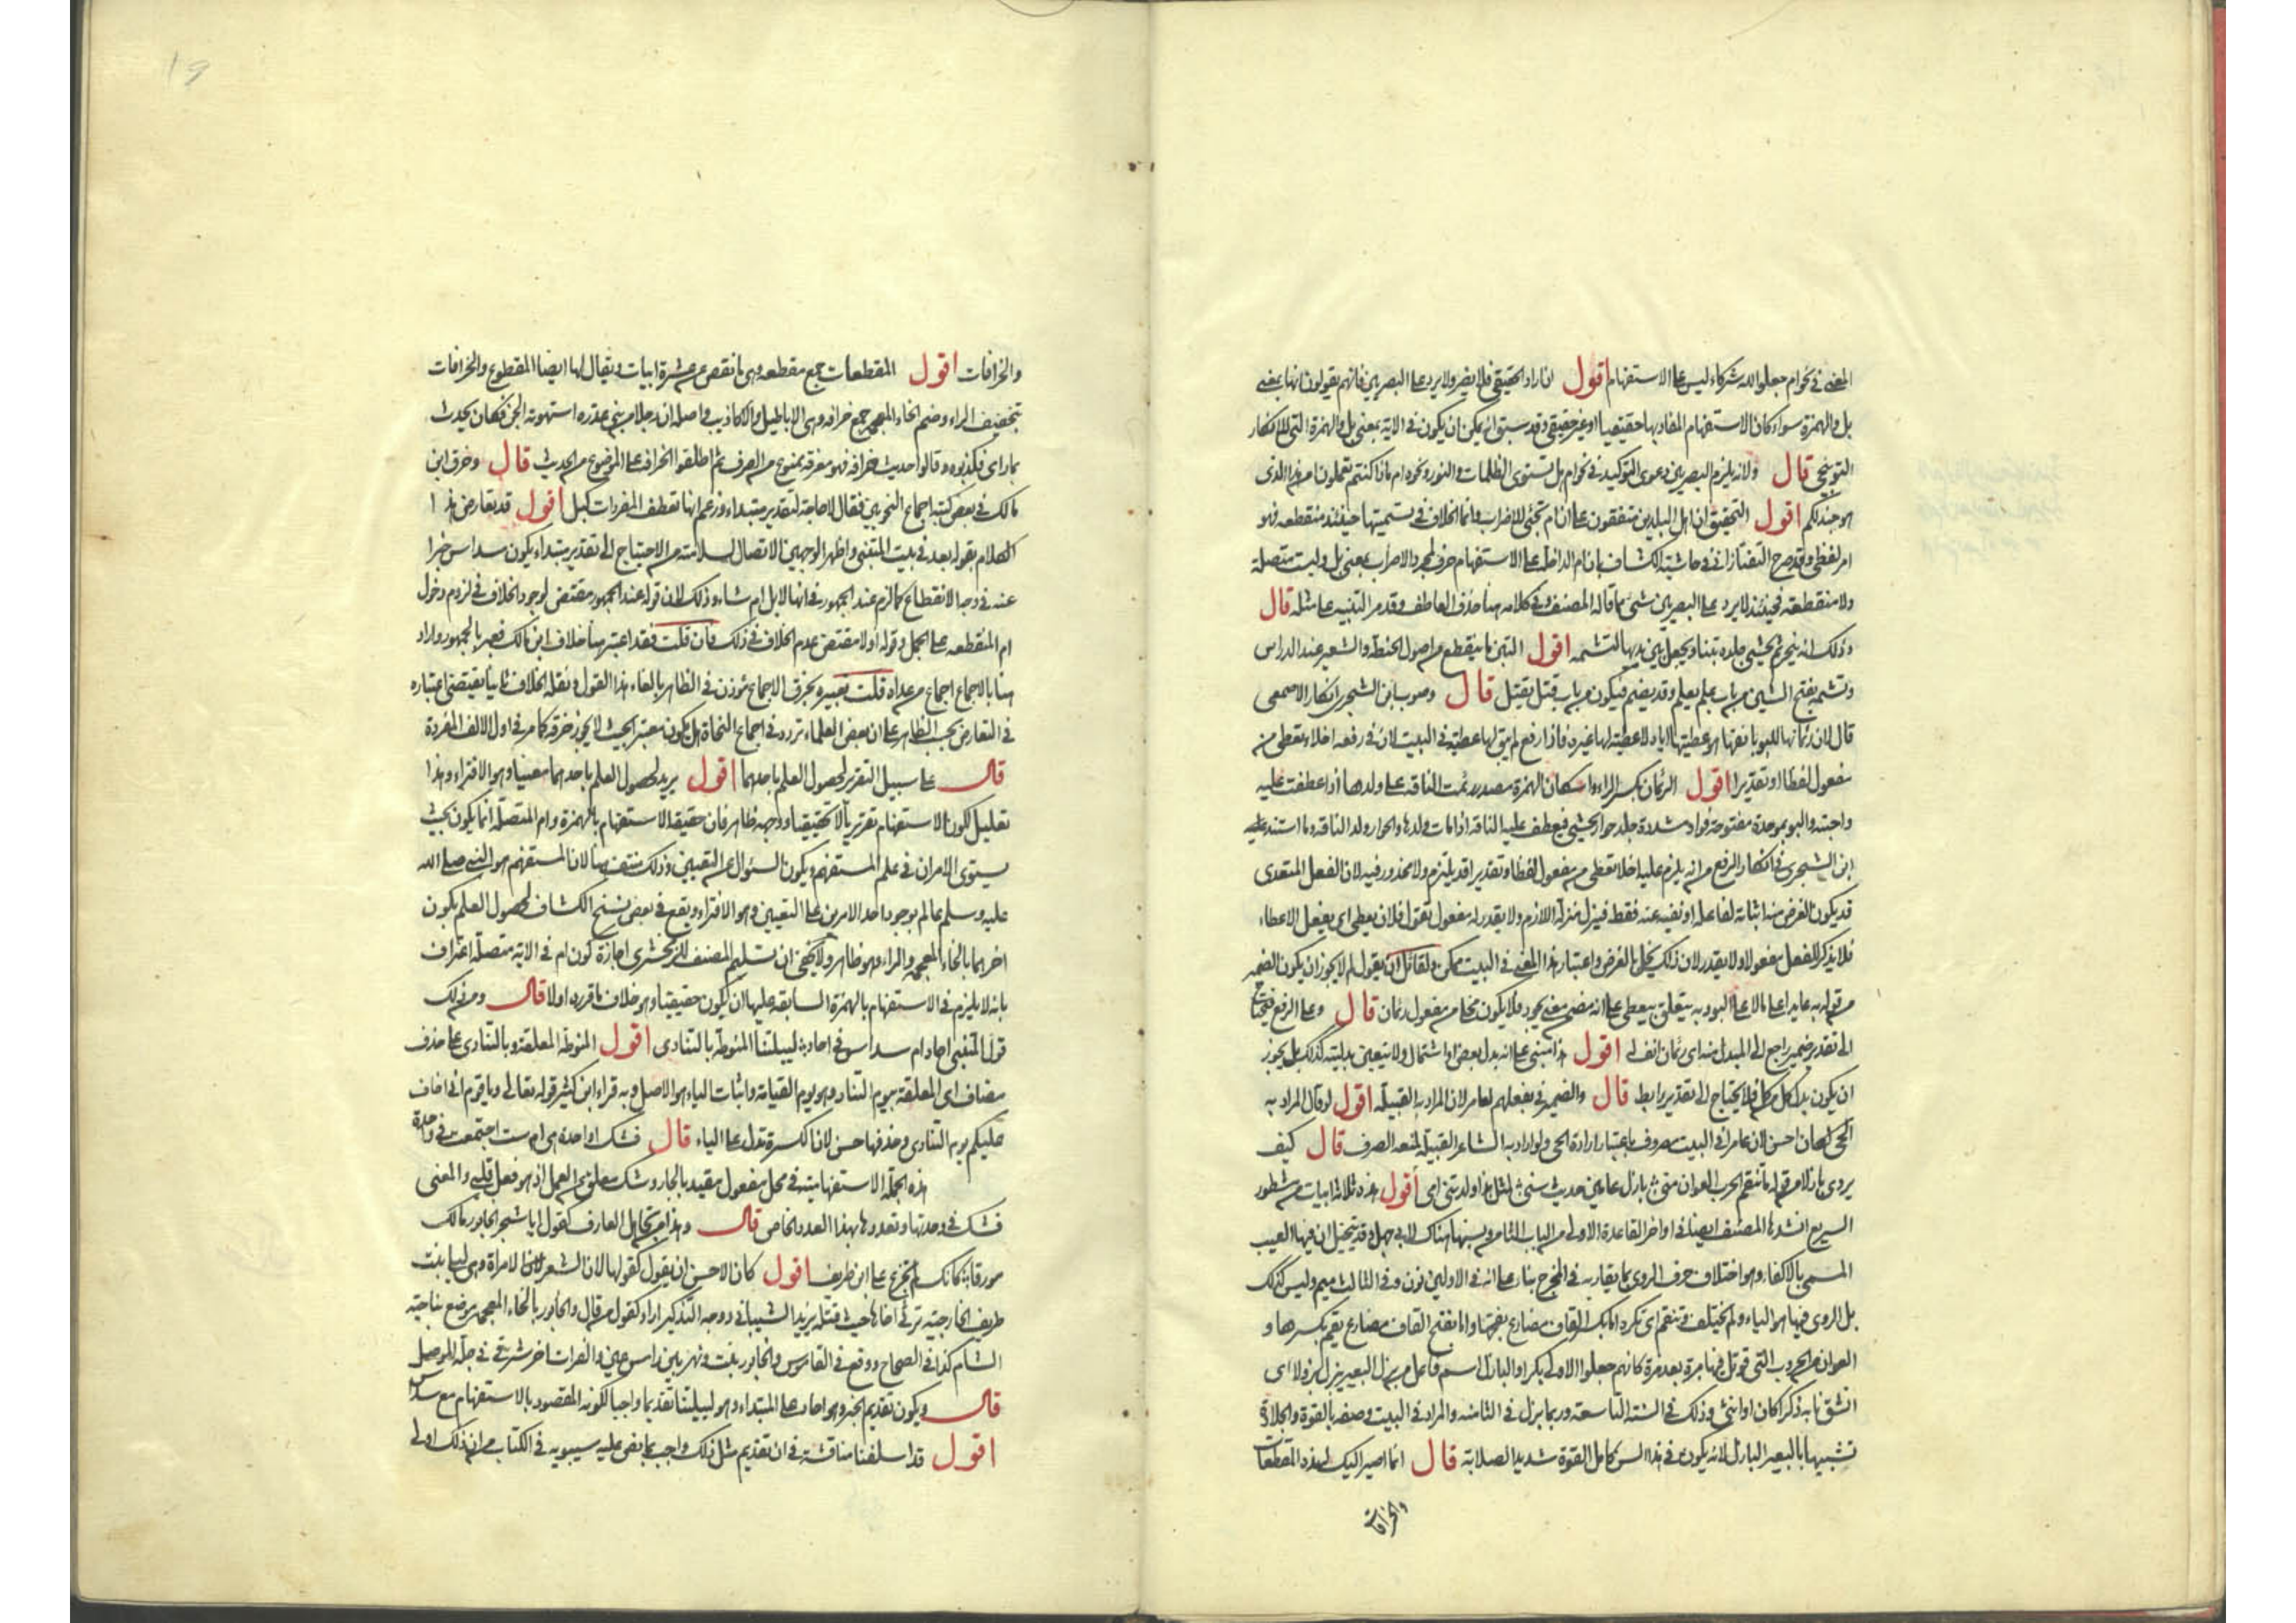 المعنى في نحو ام جعلوا لله شركاء ليس على الاستفهام اقول ان اراد الحقيقي فلا يضر ولا يرد على البصريين فانهم يقولون انها بمعنى
بل والهمزة سواء كان الاستفهام المفاد بها حقيقيا او غير حقيقي وقد سبق انه يمكن ان يكون في الاية بمعنى بل والهمزة التي للانكار
التوبيخي قال ولانه يلزم البصريين دعوى التوكيد في نحو ام بل تستوى الظلمات والنور ونحو ام ماذا كنتم تعملون امن هذا الذى
هو جند لكم اقول التحقيق ان اهل البلدين متفقون على ان ام تجئ للاضراب وانما الخلاف في تسميتها حينئذ منقطعة فهو
امر لفظي وقد صرح التفتازاني في حاشية الكشاف بان ام الداخلة على الاستفهام حرف لمجرد الاضراب بمعنى بل وليست متصلة
ولا منقطعة فحينئذ لا يرد على البصريين شئ مما قاله المصنف وفي كلامه هنا حذف العاطف وقد مر التنبيه على مثله قال
وذلك انه ينحر ثم يحشى جلده تبنا ويجعل بين يديها لتشمه اقول التبن ما ينقطع من اصول الحنطة والشعير عند الدراس
وتشم بفتح الشين من باب علم يعلم وقد يضم فيكون من باب قتل يقتل قال وصوب ابن الشجرى انكار الاصمعى
قال لان رئمانها للبو بانفها هو عطيتها اياه لا عطية لها غيره فاذا رفع لم يبق لها عطية في البيت لان في رفعه اخلاء تعطي من
مفعول لفظا او تقديرا اقول الرئمان بكسر الراء واسكان الهمزة مصدر رئمت الناقة على ولدها اذا عطفت عليه
واحبته والبو بموحدة مفتوحة فواو مشددة جلد حوار يحشى فيعطف عليه الناقة اذا مات ولدها والحوار ولد الناقة وما استند عليه
ابن الشجرى في انكار الرفع من انه يلزم عليه اخلا تعطي من مفعول لفظا وتقديرا قد يلتزم ولا محذور فيه لان الفعل المتعدى
قد يكون الغرض منه اثباته لفاعله او نفيه عنه فقط فينزل منزلة اللازم ولا يقدر له مفعول تقول فلان يعطي اى يفعل الاعطاء
فلا يذكر للفعل مفعولا ولا يقدر لان ذلك يخل بالغرض واعتبار هذا المعنى في البيت ممكن ولقائل ان يقول لم لا يجوز ان يكون الضمير
من قوله به عايدا على ما لا على البو وبه يتعلق بيعطي على انه مضمن معنى يجود فلا يكون مخلا من مفعول رئمان قال وعلى الرفع فيحتاج
الى تقدير ضمير راجع الى المبدل منه اى رئمان انف له اقول هذا مبني على انه بدل بعض او اشتمال ولا يتعين بدليته كذلك بل يجوز
ان يكون بدل كل من كل فلا يحتاج الى تقدير رابط قال والضمير في بفعلهم لعامر لان المراد به القبيلة اقول لو قال المراد به
الحي لكان احسن لان عامرا في البيت مصروف باعتبار ارادة الحي ولو اراد به الشاعر القبيلة لمنعه الصرف قال كيف
يروى بازلا من قوله ما تنقم الحرب العوان مني بازل عامين حديث سني لمثل هذا ولدتني امي اقول هذه ثلاثة ابيات من مشطور
السريع انشدها المصنف ايضا في اواخر القاعدة الاولى من الباب الثامن ونسبها هناك لابي جهل وقد يتخيل ان فيها العيب
المسمى بالاكفاء وهو اختلاف حرف الروى بما يقاربه في المخرج بناء على انه في الاولين نون وفي الثالث ميم وليس كذلك
بل الروى فيها هو الياء ولم يختلف وتنقم اى تكره اما بكسر القاف مضارع نقم بفتحها واما بفتح القاف مضارع نقم بكسرها و
العوان من الحروب التي قوتل فيها مرة بعد مرة كانهم جعلوا الاولى بكرا والبازل اسم فاعل من بزل البعير يبزل بزولا اى
انشق نابه ذكرا كان او انثى وذلك في السنة التاسعة وربما بزل في الثامنة والمراد في البيت وصفه بالقوة والجلادة
تشبيها بالبعير البازل لانه يكون في هذا السن كامل القوة شديد الصلابة قال انما اصير اليك لهذه المقطعات
والخرافات
والخرافات اقول المقطعات جمع مقطعه وهى ما نقص عن عشرة ابيات ويقال لها ايضا المقطوع والخرافات
بتخفيف الراء وضم الخاء المعجمة جمع خرافه وهى الاباطيل والاكاذيب واصله ان رجلا من بني عذره استهوته الجن فكان يحدث
بما راى فكذبوه وقالوا حديث خرافة فهو معرفة ممنوع من الصرف ثم اطلقوا الخرافه على الموضوع من الحديث قال وخرق ابن
مالك في بعض كتبه اجماع النحويين فقال لا حاجة لتقدير مبتداء وزعم انها تعطف المفردات كبل اقول قد يعارض هذا
الكلام بقوله بعد في بيت المتنبي واظهر الوجهين الاتصال لسلامته من الاحتياج الى تقدير مبتداء يكون سداس خبرا
عنه في وجه الانقطاع كما لزم عند الجمهور في انها لابل ام شاء وذلك لان قوله عند الجمهور مقتض لوجود الخلاف في لزوم دخول
ام المنقطعه على الجمل وقوله اولا مقتض عدم الخلاف في ذلك فان قلت فقد اعتبر هنا خلاف ابن مالك فعبر بالجمهور واراد
هنا بالاجماع اجماع من عداه قلت تعبيره بخرق الاجماع مؤذن في الظاهر بالغاء هذا القول ونقله الخلاف ثانيا يقتضي اعتباره
في التعارض بحسب الظاهر على ان بعض العلماء تردد في اجماع النحاة هل يكون معتبرا بحيث لا يجوز خرقه كما مر في اول الالف المفردة
قال على سبيل التقرير لحصول العلم باحدهما اقول يريد لحصول العلم باحدهما معينا وهو الافتراء وهذا
تعليل لكون الاستفهام تقريريا لا حقيقيا ووجهه ظاهر فان حقيقة الاستفهام بالهمزة وام المتصلة انما يكون بحيث
يستوى الامران في علم المستفهم ويكون السؤال عن التعيين وذلك منتف هنا لان المستفهم هو النبي صلى الله
عليه وسلم عالم بوجود احد الامرين على التعيين وهو الافتراء ويقع في بعض نسخ الكشاف لحصول العلم بكون
احدهما بالخاء المعجمه والراء وهو ظاهر ولا يخفى ان تسليم المصنف للزمخشرى اجازة كون ام في الاية متصلة اعتراف
بانه لا يلزم في الاستفهام بالهمزة السابقة عليها ان يكون حقيقيا وهو خلاف ما قرره اولا قال ومن ذلك
قول المتنبي احاد ام سداس في احاد لييلتنا المنوطة بالتنادى اقول المنوطة المعلقة وبالتنادى على حذف
مضاف اى المعلقة بيوم التناد وهو يوم القيامة واثبات الياء هو الاصل وبه قراء ابن كثير قوله تعالى ويا قوم اني اخاف
عليكم يوم التنادى وحذفها حسن لان الكسرة تدل على الياء قال فشك اواحدة هى ام ست اجتمعت في واحدة
هذه الجملة الاستفهامية في محل مفعول مقيد بالجار وشك معلق عن العمل اذ هو فعل قلبي والمعنى
فشك في وحدتها وتعددها بهذا العدد الخاص قال وهذا من تجاهل العارف كقوله ايا شجر الخابور مالك
مورقا كانك لم تجزع على ابن طريف اقول كان الاحسن ان يقول كقولها لان الشعر لامراة وهى ليلى بنت
طريف الخارجية ترثي اخاها حيث قتله يزيد الشيباني ووجه التذكير اراد كقول من قال والخابور بالخاء المعجمه موضع بناحية
الشام كذا في الصحاح ووقع في القاموس والخابور نبت ونهر بين راس عين والفرات واخر شرقي دجلة الموصل
قال ويكون تقديم الخبر وهو احاد على المبتداء وهو لييلتنا تقديما واجبا لكونه المقصود بالاستفهام مع سداس
اقول قد اسلفنا مناقشة في ان تقديم مثل ذلك واجب بما نص عليه سيبويه في الكتاب من ان ذلك اولى